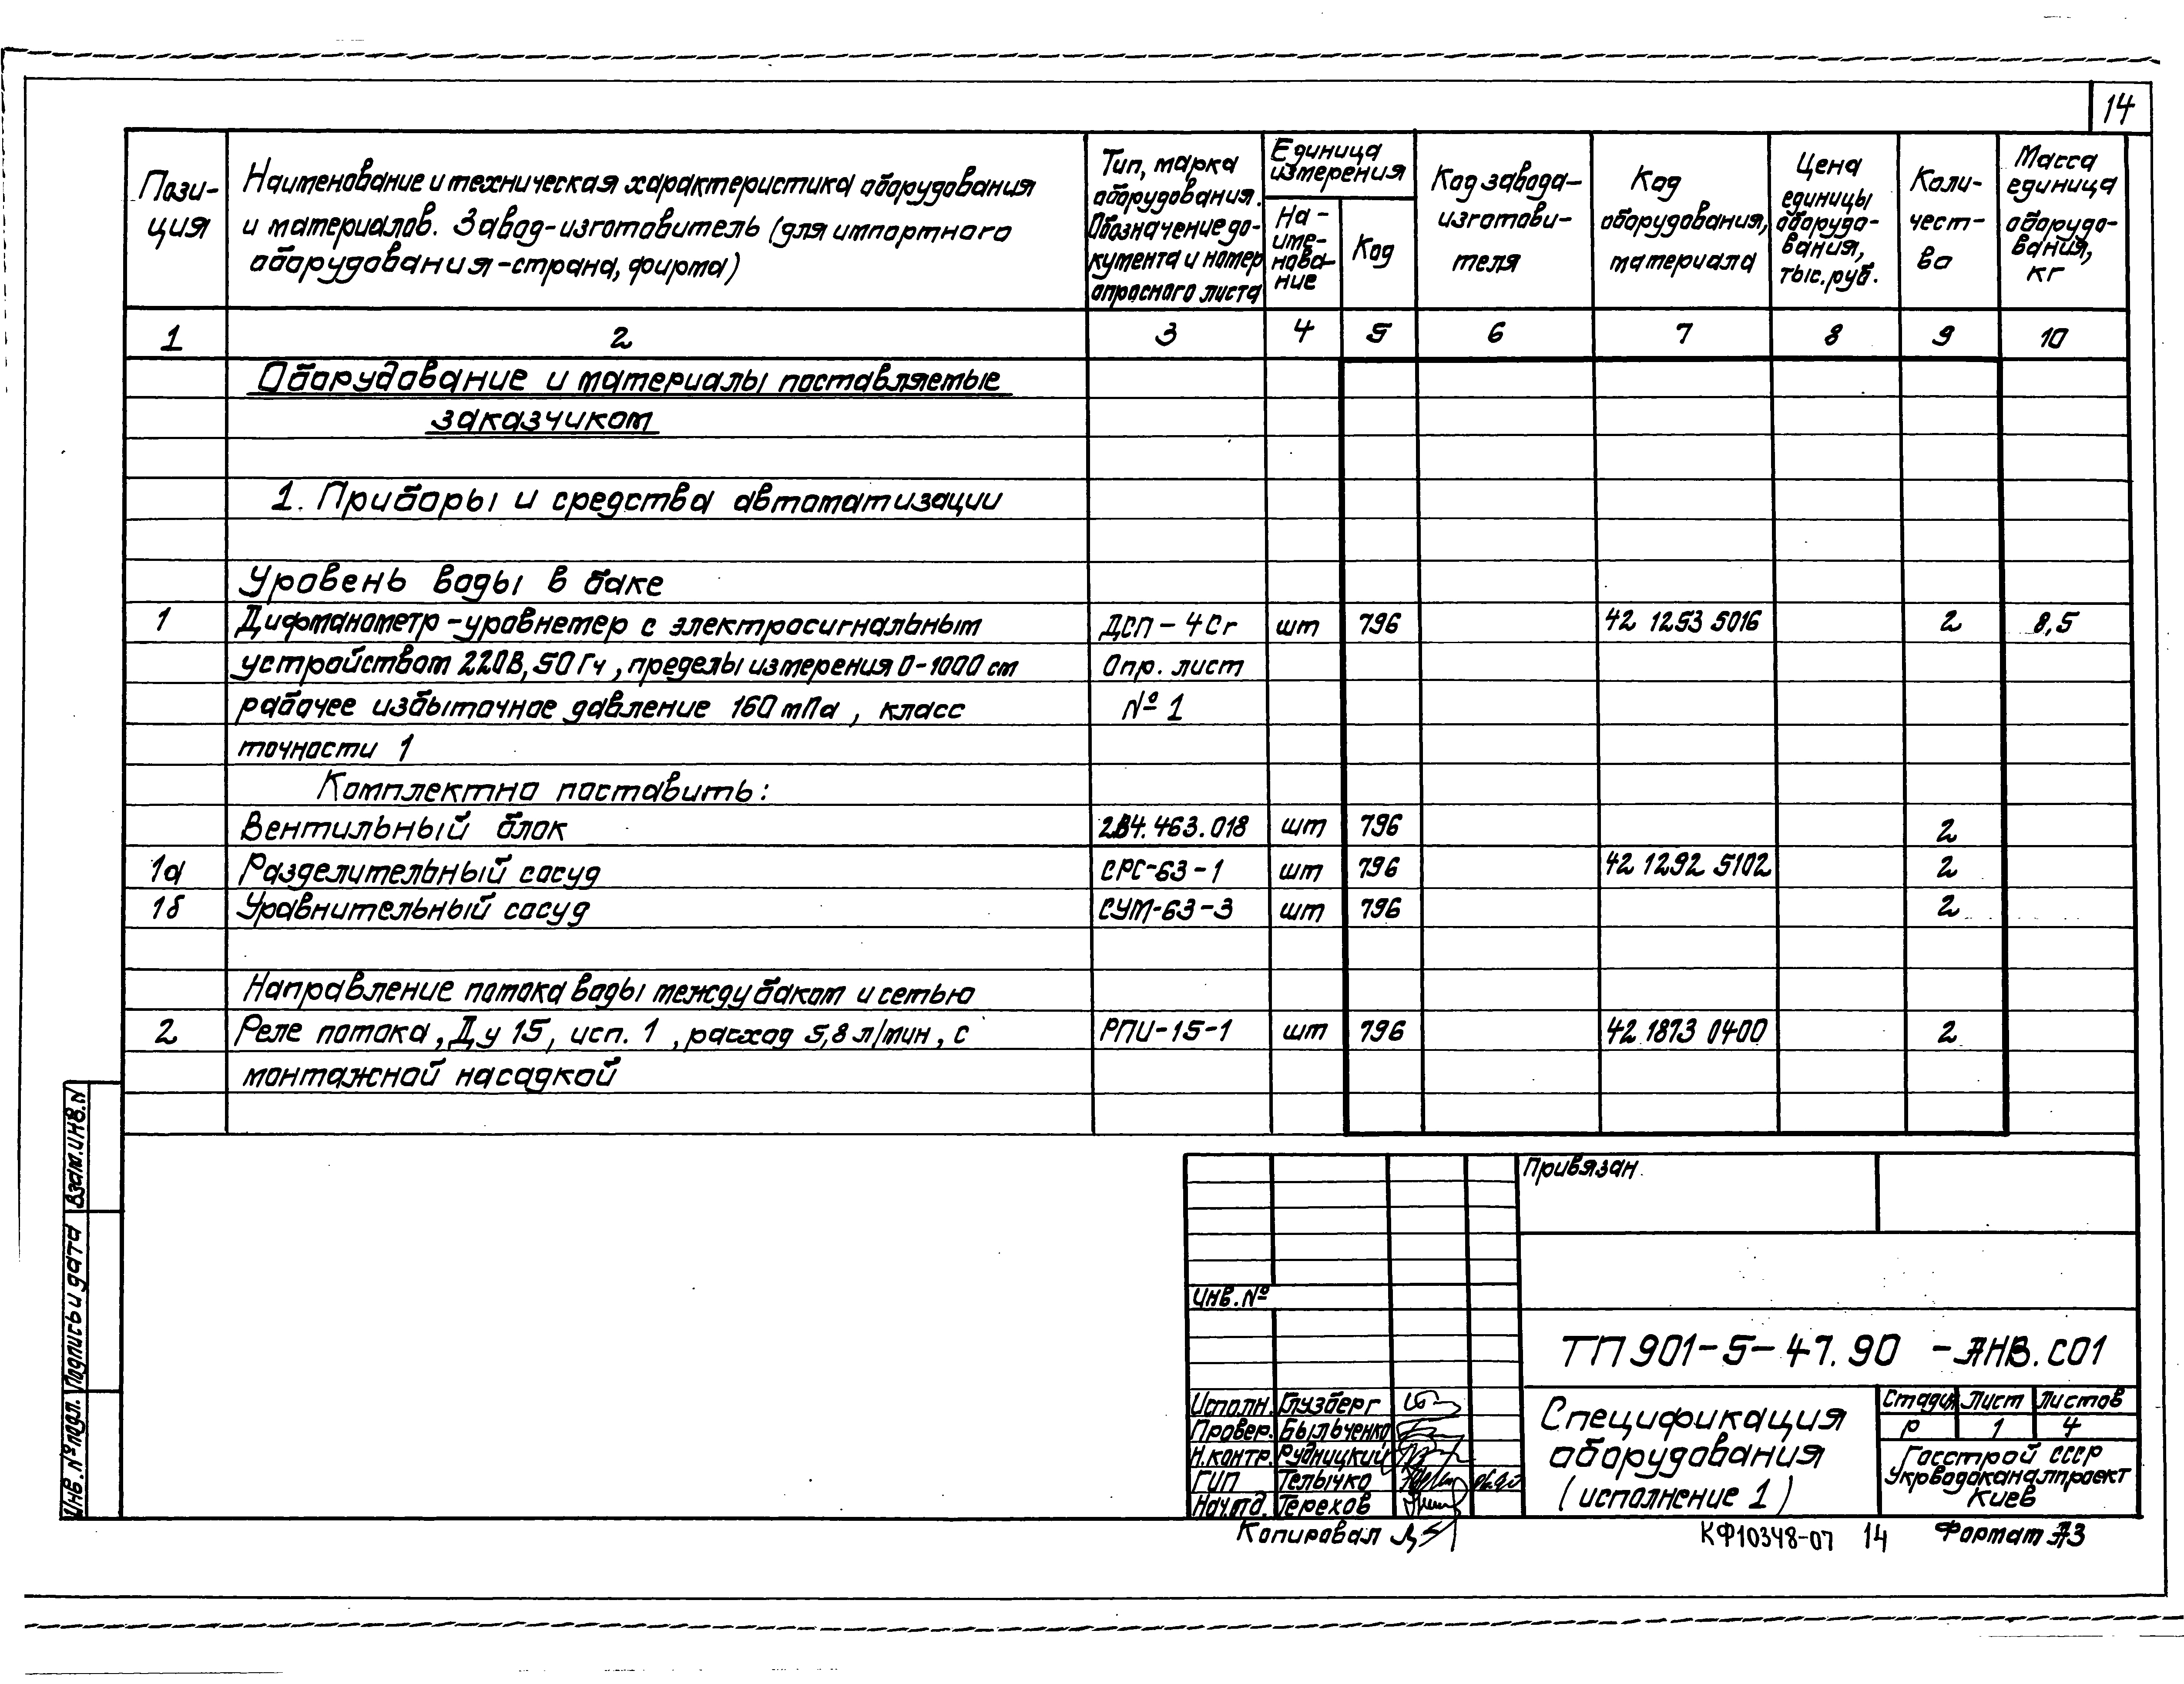 14
Пози-
ция
Наименование и техническая характеристика оборудования
и материалов. Завод-изготовитель (для импортного
оборудования-страна, фирма)
Тип, марка
оборудования.
Обозначение до-
кумента и номер
опросного листа
Единица
измерения
На-
име-
нова-
ние
Код
Код завода-
изготови-
теля
Код
оборудования,
материала
Цена
единицы
оборудо-
вания,
тыс. руб.
Коли-
чест-
во
Масса
единица
оборудо-
вания,
кг
1 2 3 4 5 6 7 8 9 10
Оборудование и материалы поставляемые
заказчиком
1. Приборы и средства автоматизации
Уровень воды в баке
1 Дифманометр-уровнемер с электросигнальным ДСП-4Сг шт 796 42 1253 5016 2 8,5
устройством 220В, 50Гч, пределы измерения 0-1000 см Опр. лист
рабочее избыточное давление 160 мПа, класс № 1
точности 1
Комплектно поставить:
Вентильный блок 2В4.463.018 шт 796 2
1а Разделительный сосуд СРС-63-1 шт 796 42 1292 5102 2
1б Уравнительный сосуд СУМ-63-3 шт 796 2
Направление потока воды между баком и сетью
2 Реле потока, Ду 15, исп. 1, расход 5,8 л/мин, с РПИ-15-1 шт 796 42 1873 0400 2
монтажной насадкой
Взам.инв.N
Подпись и дата
Инв.№ подл.
Привязан
Инв.№
ТП 901-5-47.90 -АНВ.СО1
Исполн. Глузберг
Провер. Быльченко
Н.контр. Рудницкий
ГИП Телычко
Нач.отд. Терехов
Спецификация
оборудования
(исполнение 1)
Стадия Лист Листов
Р 1 4
Госстрой СССР
Укрводоканалпроект
Киев
Копировал
КФ10348-07 14 Формат А3